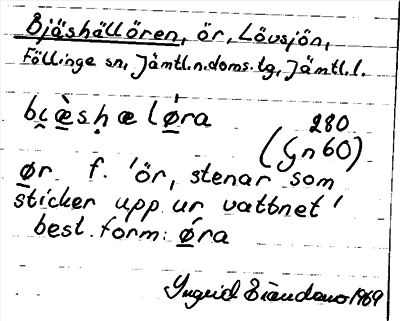 Bjäshällören, ör, Lövsjön,
Föllinge sn, Jämtl.n.doms.lg, Jämtl.l.
bi̯æ̀sḥælǿra 280
(Gn 60)
ør f. 'ör, stenar som
sticker upp ur vattnet'
best. form: ǿra
Yngvid 1969